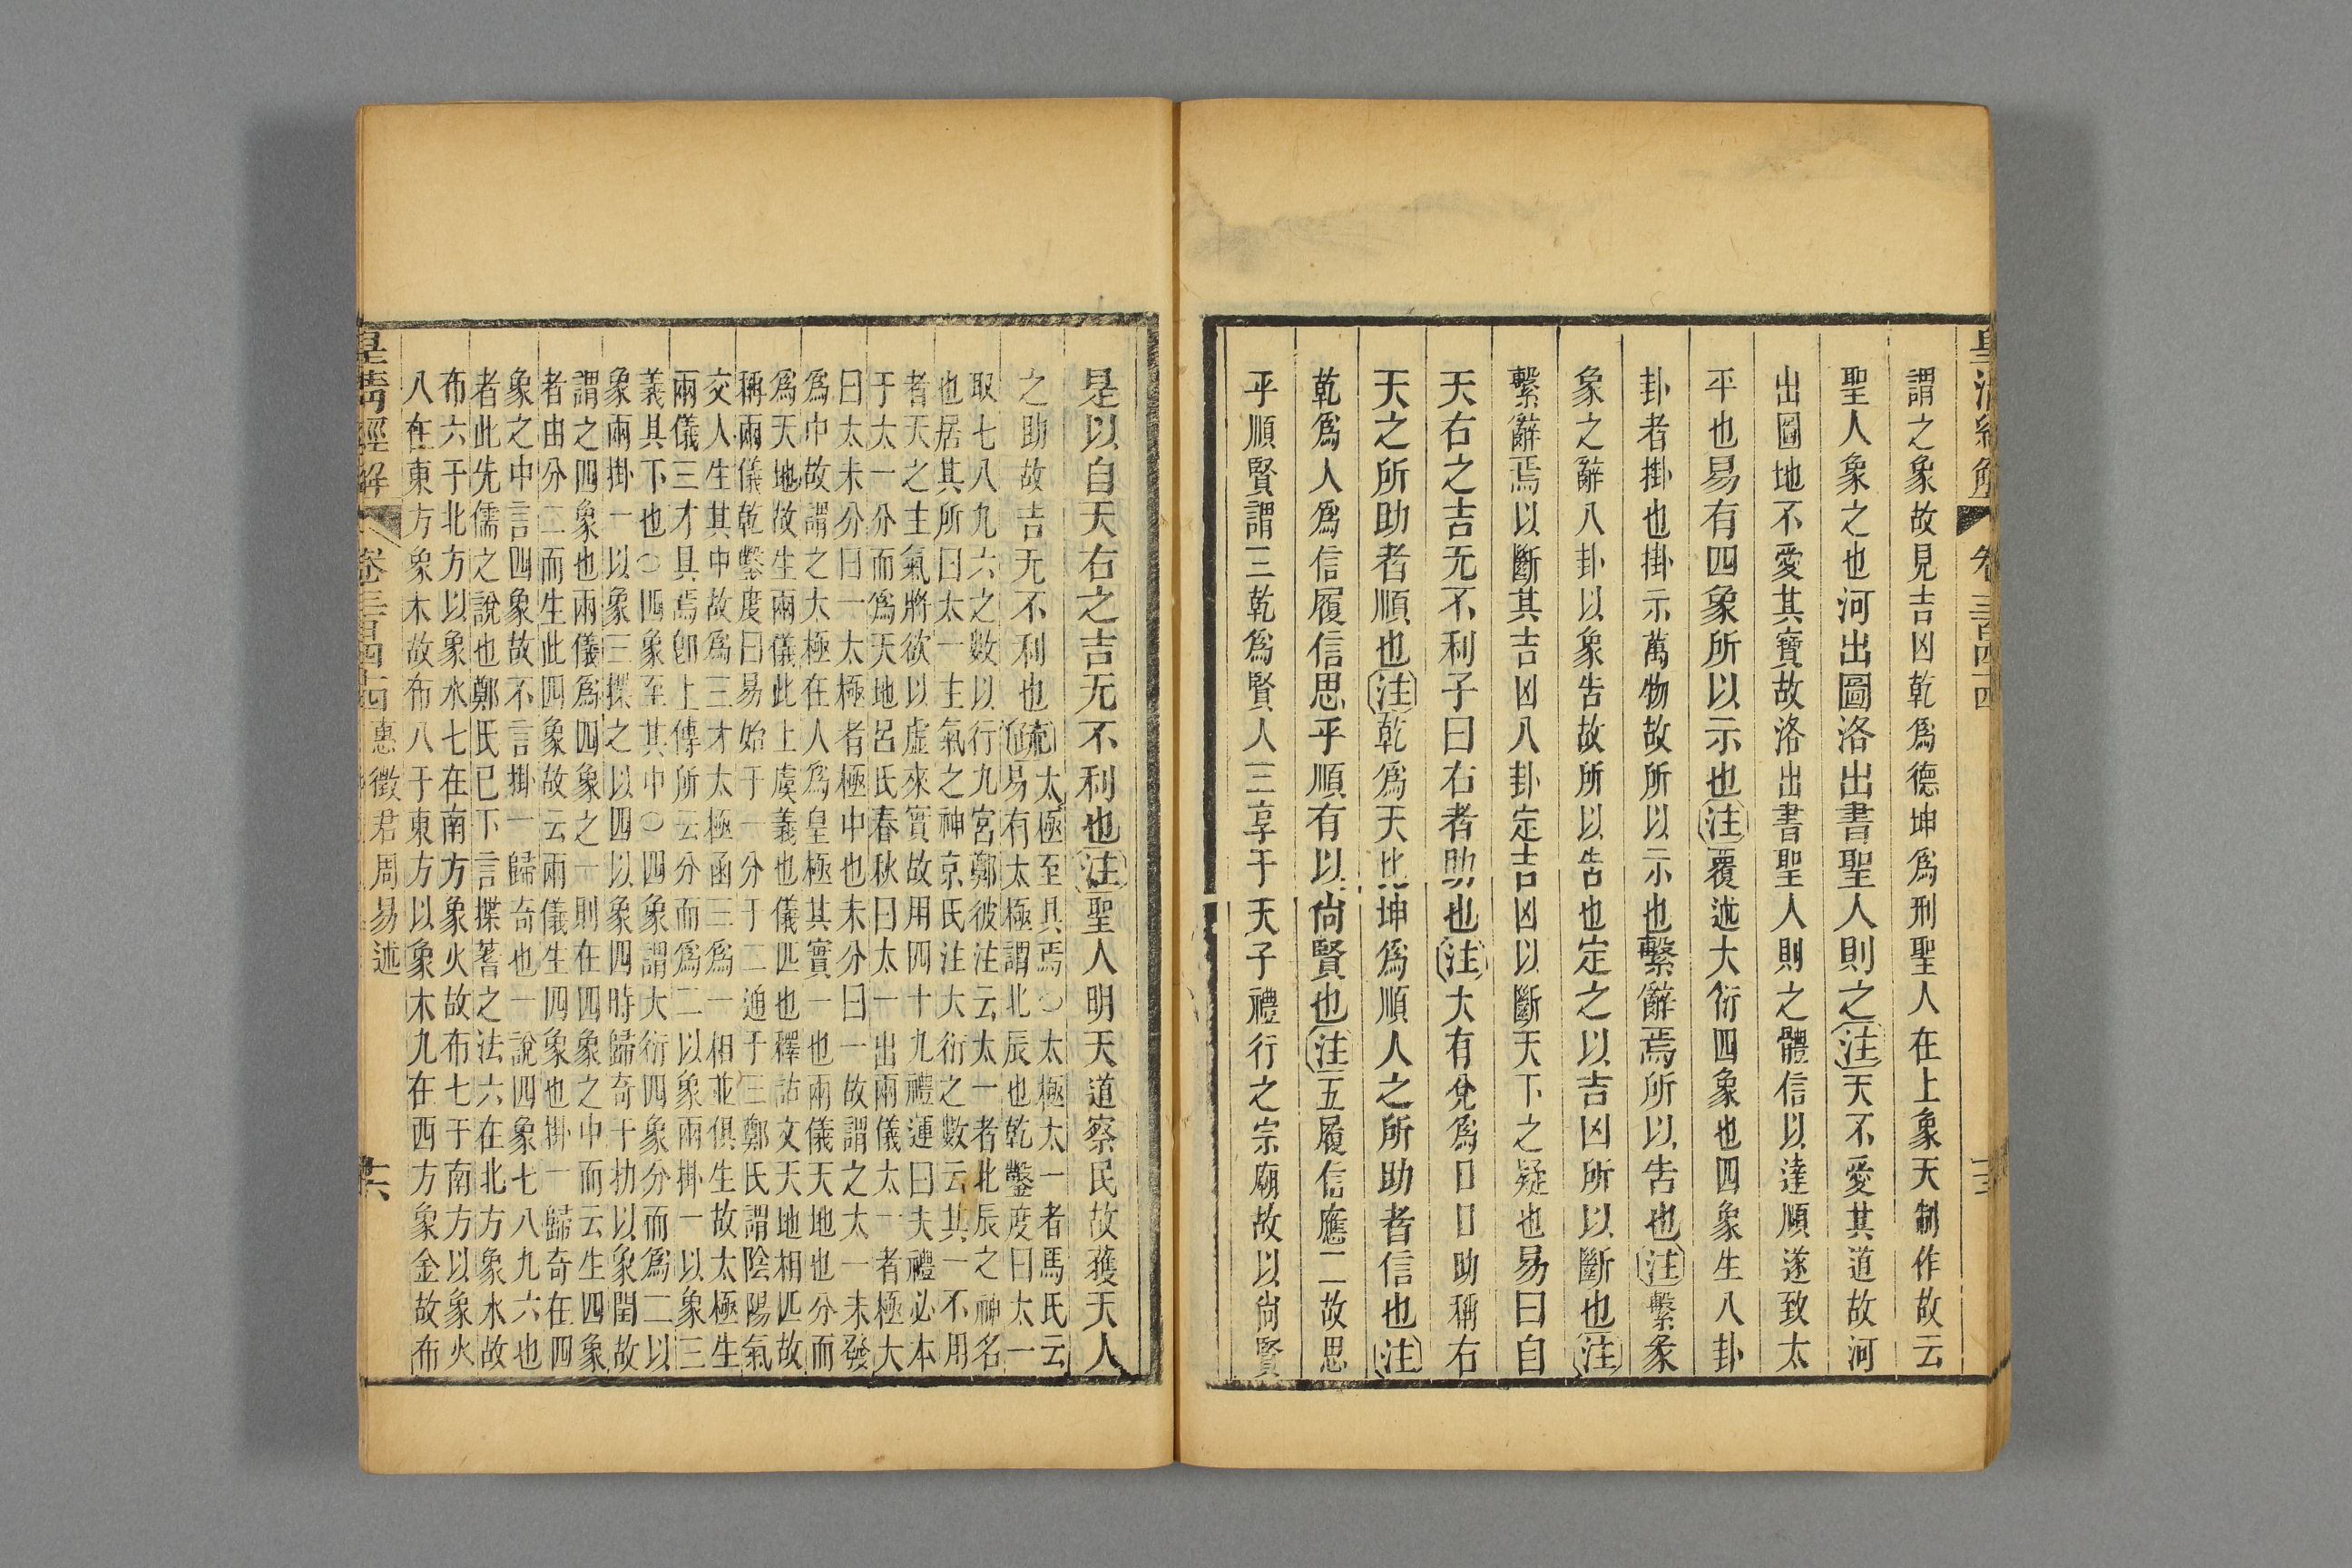 皇清經解 卷三百四十四
謂之象故見吉凶乾爲德坤爲刑聖人在上象天制作故云
聖人象之也河出圖洛出書聖人則之注天不愛其道故河
出圖地不愛其寶故洛出書聖人則之體信以達順遂致太
平也易有四象所以示也注覆述大衍四象也四象生八卦
卦者掛也掛示萬物故所以示也繫辭焉所以告也注繫彖
象之辭八卦以象告故所以告也定之以吉凶所以斷也注
繫辭焉以斷其吉凶八卦定吉凶以斷天下之疑也易曰自
天右之吉无不利子曰右者助也注大有兌爲口口助稱右
天之所助者順也注乾爲天比坤爲順人之所助者信也注
乾爲人爲信履信思乎順有以尚賢也注五履信應二故思
乎順賢謂三乾爲賢人三享于天子禮行之宗廟故以尚賢
是以自天右之吉无不利也注聖人明天道察民故獲天人
之助故吉无不利也疏太極至具焉○太極太一者馬氏云
易有太極謂北辰也乾鑿度曰太一
取七八九六之數以行九宮鄭彼注云太一者北辰之神名
也居其所曰太一主氣之神京氏注大衍之數云其一不用
者天之主氣將欲以虛來實故用四十九禮運曰夫禮必本
于太一分而爲天地呂氏春秋曰太一出兩儀太一者極大
曰太未分曰一太極者極中也未分曰一故謂之太一未發
爲中故謂之太極在人爲皇極其實一也兩儀天地也分而
爲天地故生兩儀此上虞義也儀匹也釋詁文天地相匹故
稱兩儀乾鑿度曰易始于一分于二通于三鄭氏謂陰陽氣
交人生其中故爲三才太極函三爲一相並俱生故太極生
兩儀三才具焉卽上傳所云分而爲二以象兩掛一以象三
義具其下也○四象至其中○四象謂大衍四象分而爲二以
象兩掛一以象三揲之以四以象四時歸奇于扐以象閏故
謂之四象也兩儀爲四象之一則在四象之中而云生四象
者由分二而生此四象故云兩儀生四象也掛一歸奇在四
象之中言四象故不言掛一歸奇也一說四象七八九六也
者此先儒之說也鄭氏已下言揲蓍之法六在北方象水故
布六于北方以象水七在南方象火故布七于南方以象火
八在東方象木故布八于東方以象木九在西方象金故布
皇清經解 卷三百四十四 惠徵君周易述 十六